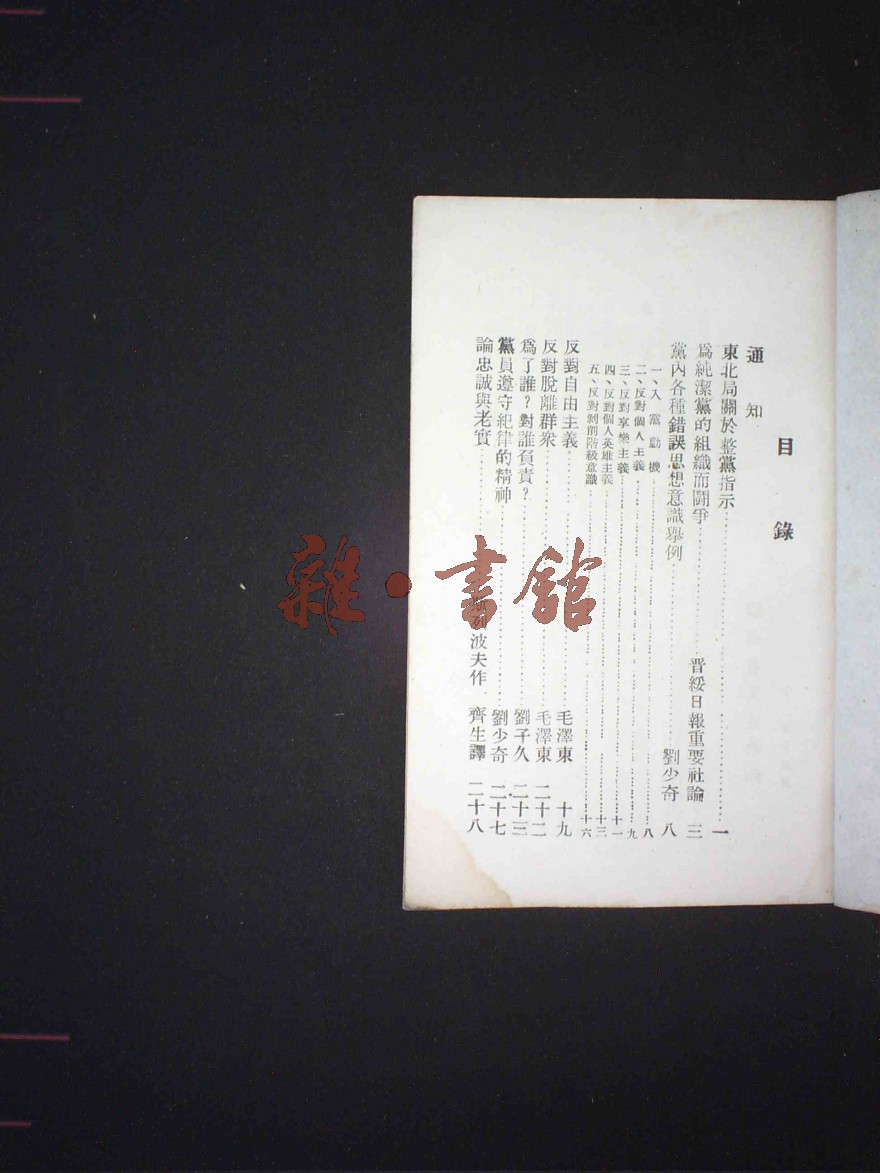 目錄
通知
東北局關於整黨指示 一
爲純潔黨的組織而鬪爭 晋綏日報重要社論 三
黨内各種錯誤思想意識舉例 劉少奇 八
一、入黨動機 八
二、反對個人主義 九
三、反對享樂主義 十一
四、反對個人英雄主義 十三
五、反對剝削階級意識 十六
反對自由主義 毛澤東 十九
反對脫離群衆 毛澤東 二十二
爲了誰？對誰負責？ 劉子久 二十三
黨員遵守紀律的精神 劉少奇 二十七
論忠誠與老實 波夫作 齊生譯 二十八
雜·書館